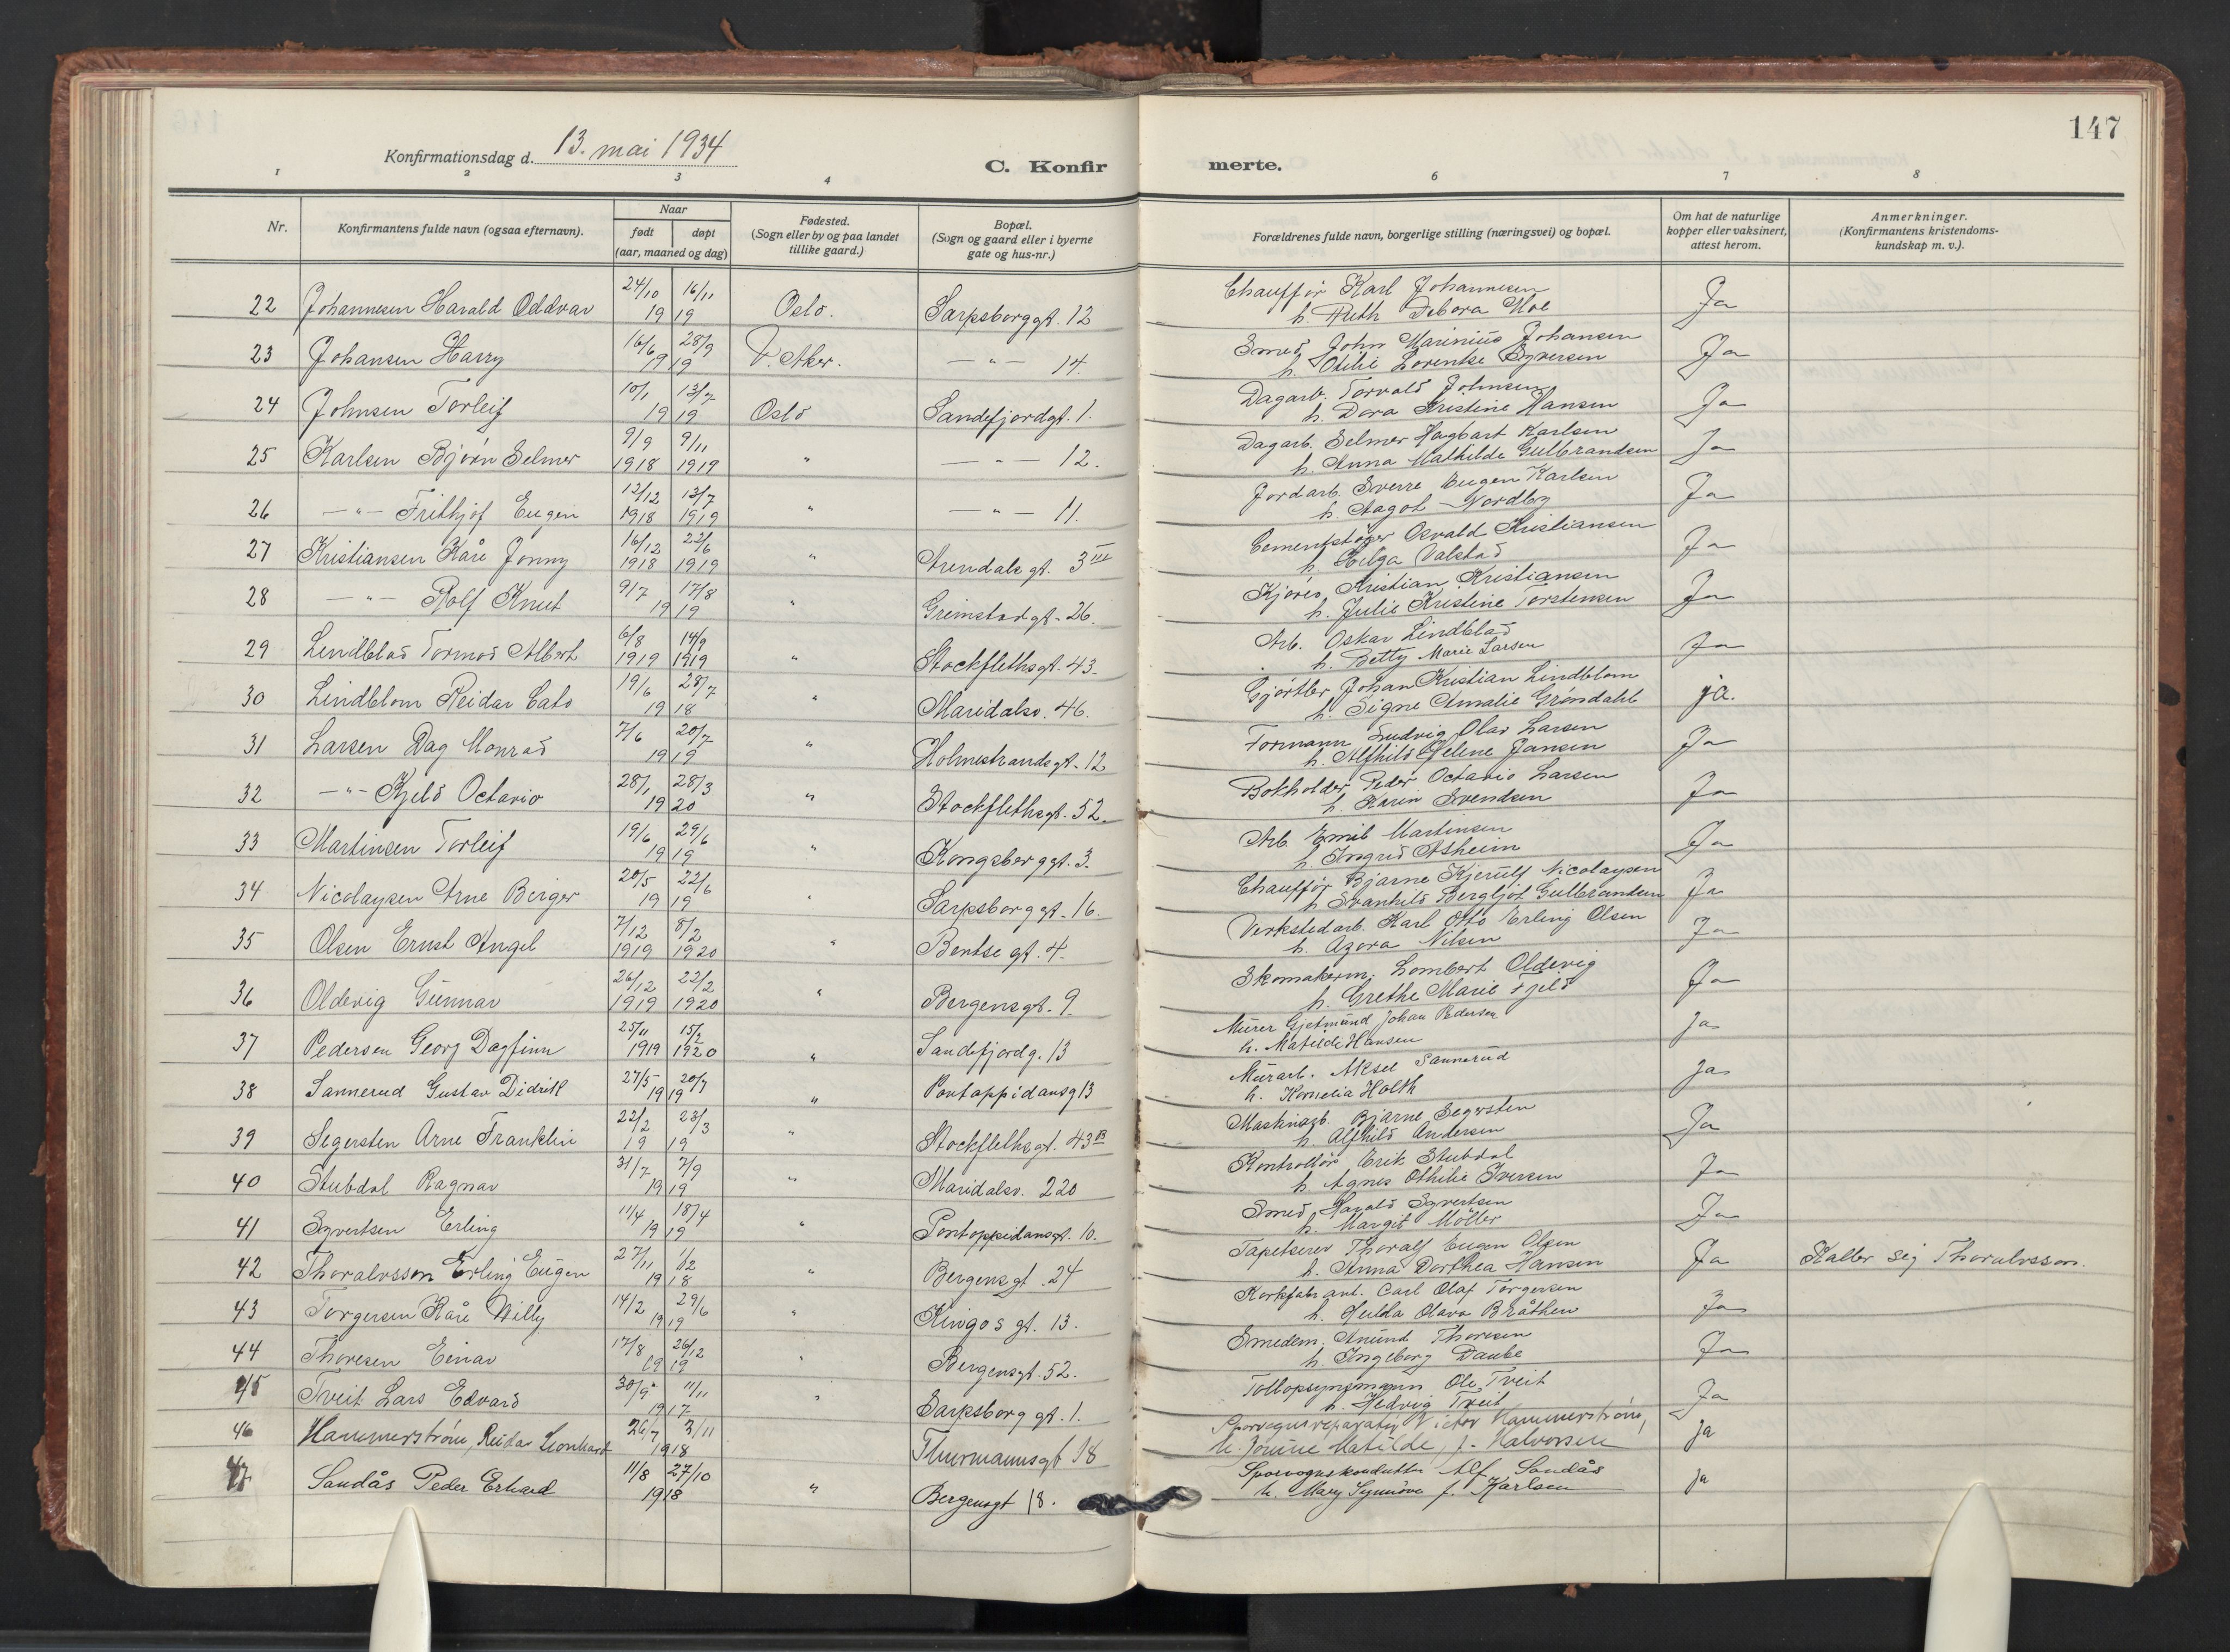 147
Konfirmationsdag d. 13. mai 1934
C. Konfirmerte.
1 2 3 4 6 7 8
Nr. Konfirmantens fulde navn (ogsaa efternavn). Naar født døpt (aar, maaned og dag) Fødested. (Sogn eller by og paa landet tillike gaard.) Bopæl. (Sogn og gaard eller i byerne gate og hus-nr.) Forældrenes fulde navn, borgerlige stilling (næringsvei) og bopæl. Om hat de naturlige kopper eller vaksinert, attest herom. Anmerkninger. (Konfirmantens kristendoms-kundskap m. v.).
22 Johannesen Harald Oddvar 24/10 16/11 1919 Oslo. Sarpsborggt. 12 Chauffør Karl Johannesen Ja
h. Ruth Debora Moe
23 Johansen Harry 16/6 28/9 1919 V. Aker. — " — 14. Smed John Marinius Johansen Ja
h. Otilie Lorentse Syversen
24 Johnsen Torleif 10/1 13/7 1919 Oslo Sandefjordgt. 1. Dagarb. Torvald Johnsen Ja
h. Dora Kristine Hansen
25 Karlsen Bjørn Selmer 9/9 1918 9/11 1919 " — " — 12. Dagarb. Selmer Hagbart Karlsen Ja
h. Anna Mathilde Gulbrandsen
26 — " — Frithjof Eugen 12/12 1918 13/7 1919 " — " — 11. Jordarb. Sverre Eugen Karlsen Ja
h. Aagot Nordby
27 Kristiansen Kåre Jonny 16/12 1918 22/6 1919 " Arendals gt. 3 III Cementstøper Osvald Kristiansen Ja
h. Helga Valstad
28 — " — Rolf Knut 9/7 17/8 1919 " Grimstadgt. 26. Kjøres. Kristian Kristiansen Ja
h. Julie Kristine Torstensen
29 Lindblad Tormod Albert 6/8 1919 14/9 1919 " Stockflethsgt. 43. Arb. Oskar Lindblad Ja
h. Betty Marie Larsen
30 Lindblom Reidar Cato 19/6 28/7 1918 " Maridalsv. 46. Gjørtler Johan Kristian Lindblom ja.
h. Signe Amalie Grøndahl
31 Larsen Dag Monrad 7/6 20/7 1919 " Holmestrandsgt. 12 Formann Ludvig Olav Larsen Ja
h. Alfhild Helene Jansen
32 — " — Kjeld Octavio 28/1 28/3 1920 " Stockflethsgt. 52. Bokholder Peder Octavio Larsen Ja
h. Karin Svendsen
33 Martinsen Torleif 19/6 29/6 1919 " Kongsberggt. 3. Arb. Emil Martinsen Ja
h. Ingrid Asheim
34 Nicolaysen Arne Birger 20/5 22/6 1919 " Sarpsborggt. 16. Chauffør Bjarne Kjerulf Nicolaysen Ja
h. Svanhild Bergljot Gulbrandsen
35 Olsen Ernst Angel 7/12 1919 8/2 1920 " Bentse gt. 4. Verkstedarb. Karl Otto Erling Olsen Ja
h. Azora Nilsen
36 Oldevig Gunnar 26/12 1919 22/2 1920 " Bergensgt. 9. Skomakerm. Lombert Oldevig Ja
h. Grethe Marie Fjeld
37 Pedersen Georg Dagfinn 25/11 1919 15/2 1920 " Sandefjordg. 13 Murer Gjetmund Johan Pedersen Ja
h. Matilde Hansen
38 Sannerud Gustav Didrik 27/5 20/7 1919 " Pontoppidansg 13 Murarb. Aksel Sannerud Ja
h. Kornelia Holth
39 Segersten Arne Franklin 22/2 23/3 19 19 " Stockflethsgt. 43 B Maskinarb. Bjarne Segersten Ja
h. Alfhild Andersen
40 Stubdal Ragnar 31/7 7/9 1919 " Maridalsv. 220 Kontrollør Erik Stubdal Ja
h. Agnes Othilie Iversen
41 Syvertsen Erling 11/4 18/4 1919 " Pontoppidansgt. 10. Smed Harald Syvertsen Ja
h. Margit Möller
42 Thoralvsson Erling Eugen 27/11 1/2 1918 " Bergensgt. 24 Tapetserer Thoralf Eugen Olsen Ja Kaller sig Thoralvsson.
h. Anna Dorthea Hansen
43 Torgersen Kåre Willy 14/2 29/6 1919 " Kingos gt. 13. Korkfabrikant. Carl Olaf Torgersen Ja
h. Hulda Olava Bråthen
44 Thoresen Einar 17/8 26/12 1919 " Bergensgt. 52. Smedem. Anund Thoresen Ja
h. Ingeborg Daube
45 Tveit Lars Edvard 30/9 11/11 1917 " Sarpsborg gt. 1. Tollopsynsmann Ole Tveit Ja
h. Hedvig Tveit
46 Hammerstrøm, Reidar Leonhart 26/7 3/11 1918 Thurmannsgt 18 Sporvognsreparatør Victor Hammerstrøm, ja
h. Jonine Matilde, f. Halvorsen
47 Sandås Peder Erhard 11/8 27/10 1918 " Bergensgt 18. Sporvognskonduktør Alf Sandås ja
h. Mary Synnøve f. Karlsen